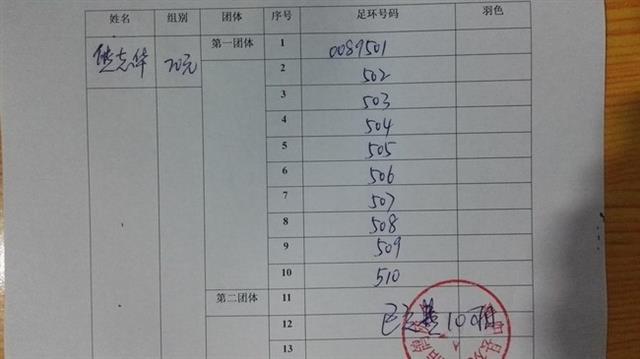 姓名 组别 团体 序号 足环号码 羽色
熊志华 70元 第一团体 1 0089501
2 502
3 503
4 504
5 505
6 506
7 507
8 508
9 509
10 510
第二团体 11
12
13